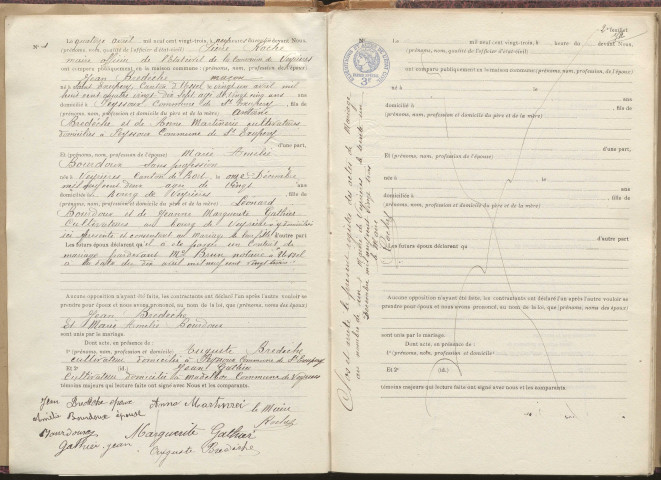 Le quatorze avril mil neuf cent vingt-trois, heures devant Nous,
N° 1 (prénoms, nom, qualité de l'officier d'état-civil) Pierre Roche
maire officier de l'Etat civil de la Commune de Veyrières
ont comparu publiquement en la maison commune (prénoms, nom, profession de l'époux)
Jean Bredèche maçon
né à Saint Canton d'Ussel le vingt un avril mil
huit cent quatre vingt dix sept âgé de vingt cinq ans
domicilié à Peyssac Commune de St , fils de
(prénoms, nom, profession et domicile du père et de la mère) Antoine
Bredèche et de Anna cultivateurs
domiciliés à Peyssac Commune de St
d'une part,
Et (prénoms, nom, profession de l'épouse) Marie Amélie
Bourdoux sans profession
née à Veyrières, Canton de Bort, le onze Décembre
mil neuf cent deux âgée de vingt ans
domiciliée à bourg de Veyrières , fille de
(prénoms, nom, profession et domicile du père et de la mère) Léonard
Bourdoux et de Jeanne Marguerite Gathier
Cultivateurs au bourg de Veyrières y domiciliés
ici présents et consentant au mariage de leur fille d'autre part
Les futurs époux déclarent qu'il a été passé un Contrat de
mariage pardevant Me Brun notaire à Ussel
à la date du dix avril mil neuf cent vingt trois
Aucune opposition n'ayant été faite, les contractants ont déclaré l'un après l'autre vouloir se
prendre pour époux et nous avons prononcé, au nom de la loi, que (prénoms, noms des époux)
Jean Bredèche
Et Marie Amélie Bourdoux
sont unis par le mariage.
Dont acte, en présence de :
1° (prénoms, nom, profession et domicile) Auguste Bredèche
cultivateur domicilié à Peyssac Commune de St
Et 2° (id.) Jean Gathier
Cultivateur domicilié à Commune de Veyrières
témoins majeurs qui lecture faite ont signé avec Nous et les comparants.
Jean Bredèche époux
Amélie Bourdoux épouse
Anna
le Maire
Roche
Bourdoux
Marguerite Gathier
Gathier Jean
Auguste Bredèche
2e feuillet
N° Le mil neuf cent vingt-trois, à heure du devant Nous,
(prénoms, nom, qualité de l'officier d'état-civil)
ont comparu publiquement en la maison commune (prénoms, nom, profession de l'époux)
né à le
ans
domicilié à , fils de
(prénoms, nom, profession et domicile du père et de la mère)
d'une part,
Et (prénoms, nom, profession de l'épouse)
née à le
ans
domiciliée à , fille de
(prénoms, nom, profession et domicile du père et de la mère)
d'autre part
Les futurs époux déclarent qu
Aucune opposition n'ayant été faite, les contractants ont déclaré l'un après l'autre vouloir se
prendre pour époux et nous avons prononcé, au nom de la loi, que (prénoms, noms des époux)
sont unis par le mariage.
Dont acte, en présence de :
1° (prénoms, nom, profession et domicile)
Et 2° (id.)
témoins majeurs qui lecture faite ont signé avec Nous et les comparants.
Clos et arrêté le présent registre des actes de mariage
au nombre de un à Veyrières le trente un
Décembre mil neuf cent vingt trois
le Maire
Roche